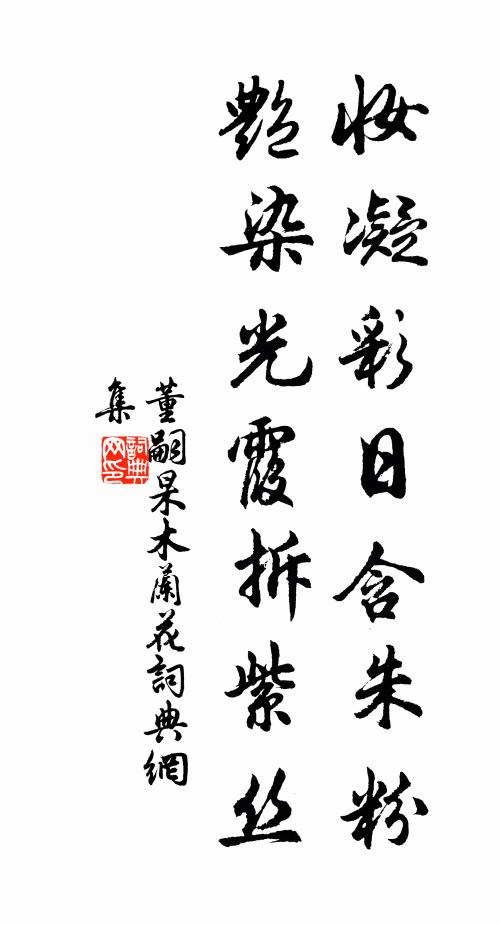 妆凝彩日含朱粉
艳染光霞拆紫丝
董嗣杲木蘭花詞典網
集
詞典
网印